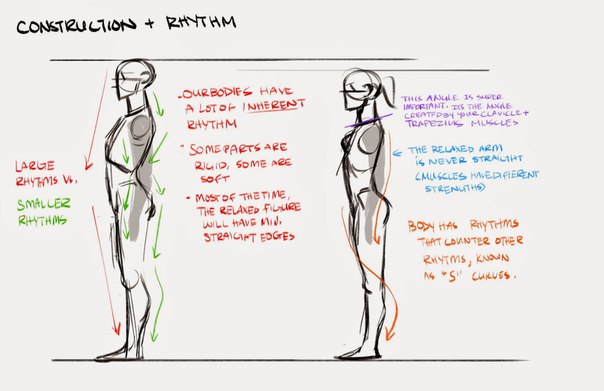 CONSTRUCTION + RHYTHM
- OUR BODIES HAVE
A LOT OF INHERENT
RHYTHM
- SOME PARTS ARE
RIGID, SOME ARE
SOFT
- MOST OF THE TIME,
THE RELAXED FIGURE
WILL HAVE MIN.
STRAIGHT EDGES
LARGE
RHYTHMS VS.
SMALLER
RHYTHMS
THIS ANGLE IS SUPER
IMPORTANT. ITS THE ANGLE
CREATED BY YOUR CLAVICLE +
TRAPEZIUS MUSCLES
THE RELAXED ARM
IS NEVER STRAIGHT
(MUSCLES HAVE DIFFERENT
STRENGTHS)
BODY HAS RHYTHMS
THAT COUNTER OTHER
RHYTMS, KNOWN
AS "S" CURVES.